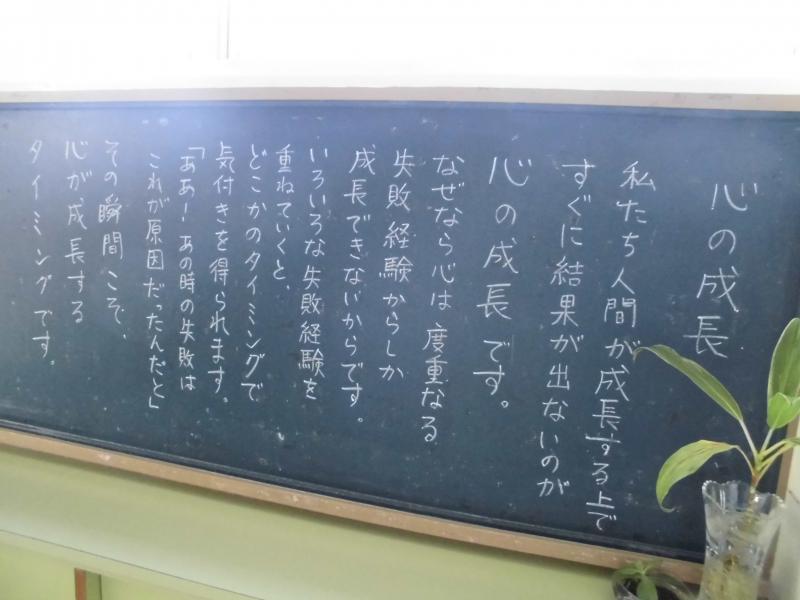 心の成長
私たち人間が成長する上で
すぐに結果が出ないのが
心の成長です。
なぜなら心は度重なる
失敗経験からしか
成長できないからです。
いろいろな失敗経験を
重ねていくと、
どこかのタイミングで
気付きを得られます。
「ああ!あの時の失敗は
これが原因だったんだと」
その瞬間こそ、
心が成長する
タイミングです。